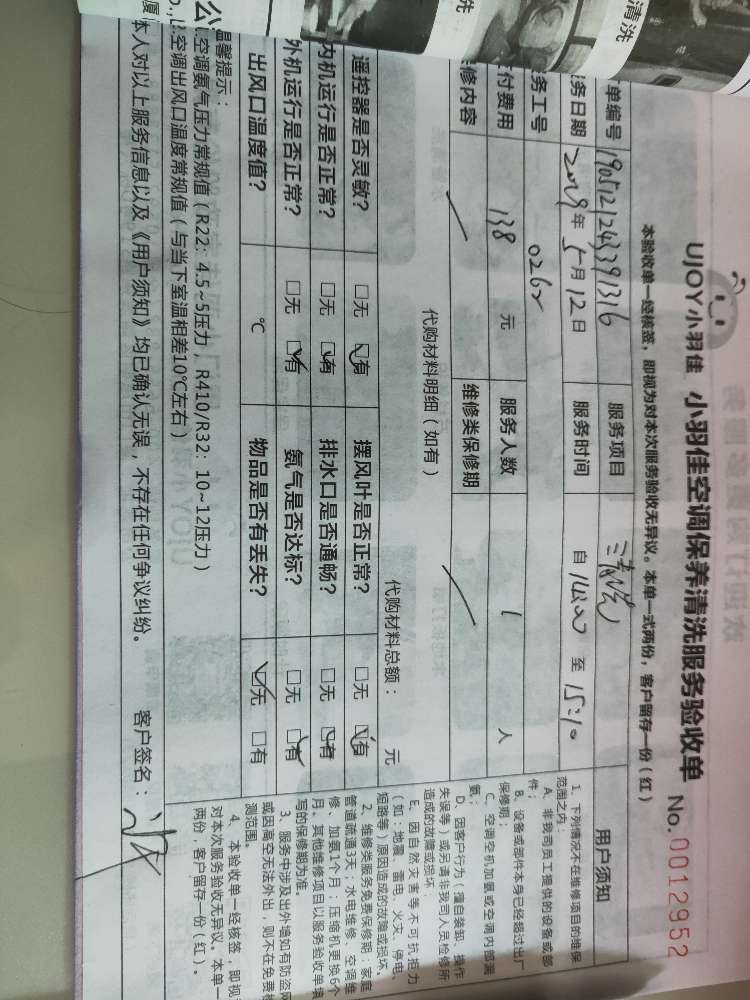 UJOY小羽佳 小羽佳空调保养清洗服务验收单 No.0012952
本验收单一经核签，即视为对本次服务验收无异议。本单一式两份，客户留存一份（红）
单编号 1905121243391316 服务项目 清洗
务日期 2019年5月12日 服务时间 自 至 15:10
务工号 0262
付费用 138 元 服务人数 1 人
修内容 维修类保修期
代购材料明细（如有）
代购材料总额： 元
遥控器是否灵敏？ □无 □有 摆风叶是否正常？ □无 □有
内机运行是否正常？ □无 □有 排水口是否通畅？ □无 □有
外机运行是否正常？ □无 □有 氨气是否达标？ □无 □有
出风口温度值？ ℃ 物品是否有丢失？ □无 □有
温馨提示：
空调氨气压力常规值（R22：4.5~5压力，R410/R32：10~12压力）
空调出风口温度常规值（与当下室温相差10℃左右）
本人对以上服务信息以及《用户须知》均已确认无误，不存在任何争议纠纷。 客户签名：
用户须知
1、下列情况不在维修项目的维保
范围之内：
A、非我司员工提供的设备或部
件；
B、设备或部件本身已经超过出厂
保修期；
C、空调空机加氨或空调内部漏
氨；
D、因客户行为（擅自装卸、操作
失误等）或另请非我司人员检修所
造成的故障或损坏；
E、因自然灾害等不可抗拒力
（如：地震、雷电、火灾、停电、
短路等）原因造成的故障或损坏。
2、维修类服务免费保修期：家庭
管道疏通3天；水电维修、空调维
修、加氨1个月；压缩机更换6个
月。其他维修项目以服务验收单填
写的保修期为准。
3、服务中涉及出外墙如有防盗网
或因高空无法外出，则不在免费检
测范围。
4、本验收单一经核签，即视
对本次服务验收无异议。本单一
两份，客户留存一份（红）。
清洗
洗
公